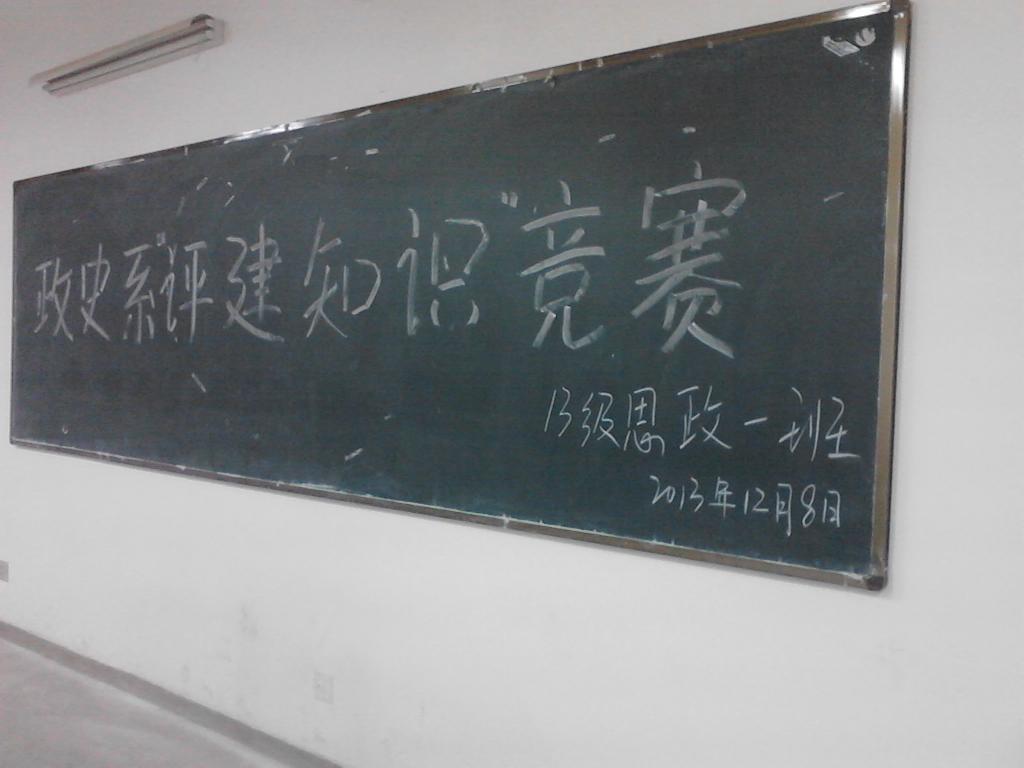 政史系"评建知识"竞赛
13级思政一班
2013年12月8日